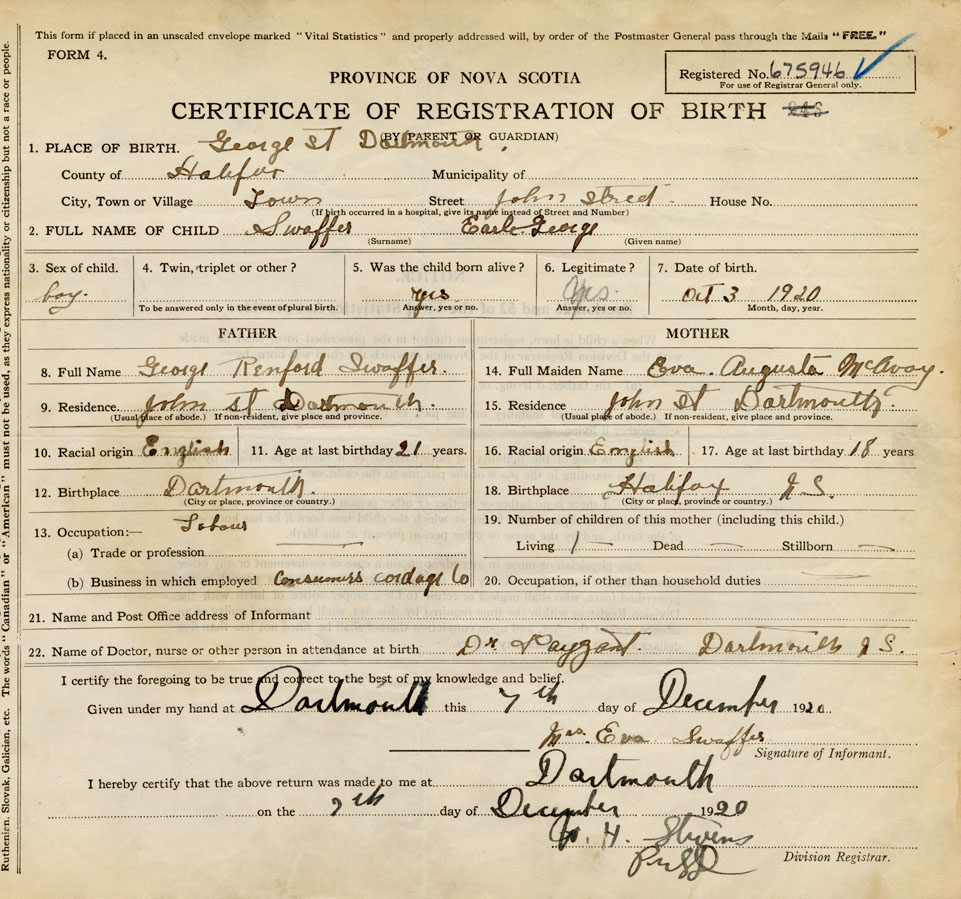 This form if placed in an unsealed envelope marked "Vital Statistics" and properly addressed will, by order of the Postmaster General pass through the Mails "FREE."
FORM 4.
Registered No. 675946
For use of Registrar General only.
PROVINCE OF NOVA SCOTIA
CERTIFICATE OF REGISTRATION OF BIRTH
(BY PARENT OR GUARDIAN)
1. PLACE OF BIRTH. George St Dartmouth.
County of Halifax Municipality of
City, Town or Village Town Street John Street House No.
(If birth occurred in a hospital, give its name instead of Street and Number)
2. FULL NAME OF CHILD Swaffer Earle George
(Surname) (Given name)
3. Sex of child. 4. Twin, triplet or other? 5. Was the child born alive? 6. Legitimate? 7. Date of birth.
boy. yes. Yes. Oct 3 1920
To be answered only in the event of plural birth. Answer, yes or no. Answer, yes or no. Month, day, year.
FATHER MOTHER
8. Full Name George Renford Swaffer. 14. Full Maiden Name Eva. Augusta McAvoy.
9. Residence John St Dartmouth 15. Residence John St Dartmouth
(Usual place of abode.) If non-resident, give place and province. (Usual place of abode.) If non-resident, give place and province.
10. Racial origin English 11. Age at last birthday 21 years. 16. Racial origin English 17. Age at last birthday 18 years
12. Birthplace Dartmouth. 18. Birthplace Halifax N.S.
(City or place, province or country.) (City or place, province or country.)
13. Occupation:— Labour 19. Number of children of this mother (including this child.)
(a) Trade or profession Living 1 Dead — Stillborn —
(b) Business in which employed Consumers cordage Co 20. Occupation, if other than household duties
21. Name and Post Office address of Informant
22. Name of Doctor, nurse or other person in attendance at birth Dr Payzant. Dartmouth N S.
I certify the foregoing to be true and correct to the best of my knowledge and belief.
Given under my hand at Dartmouth this 7th day of December 1920
Mrs. Eva Swaffer
Signature of Informant.
I hereby certify that the above return was made to me at Dartmouth
on the 7th day of December 1920
H. Stevens
Division Registrar.
Ruthenien, Slovak, Galician, etc. The words "Canadian" or "American" must not be used, as they express nationality or citizenship but not a race or people.